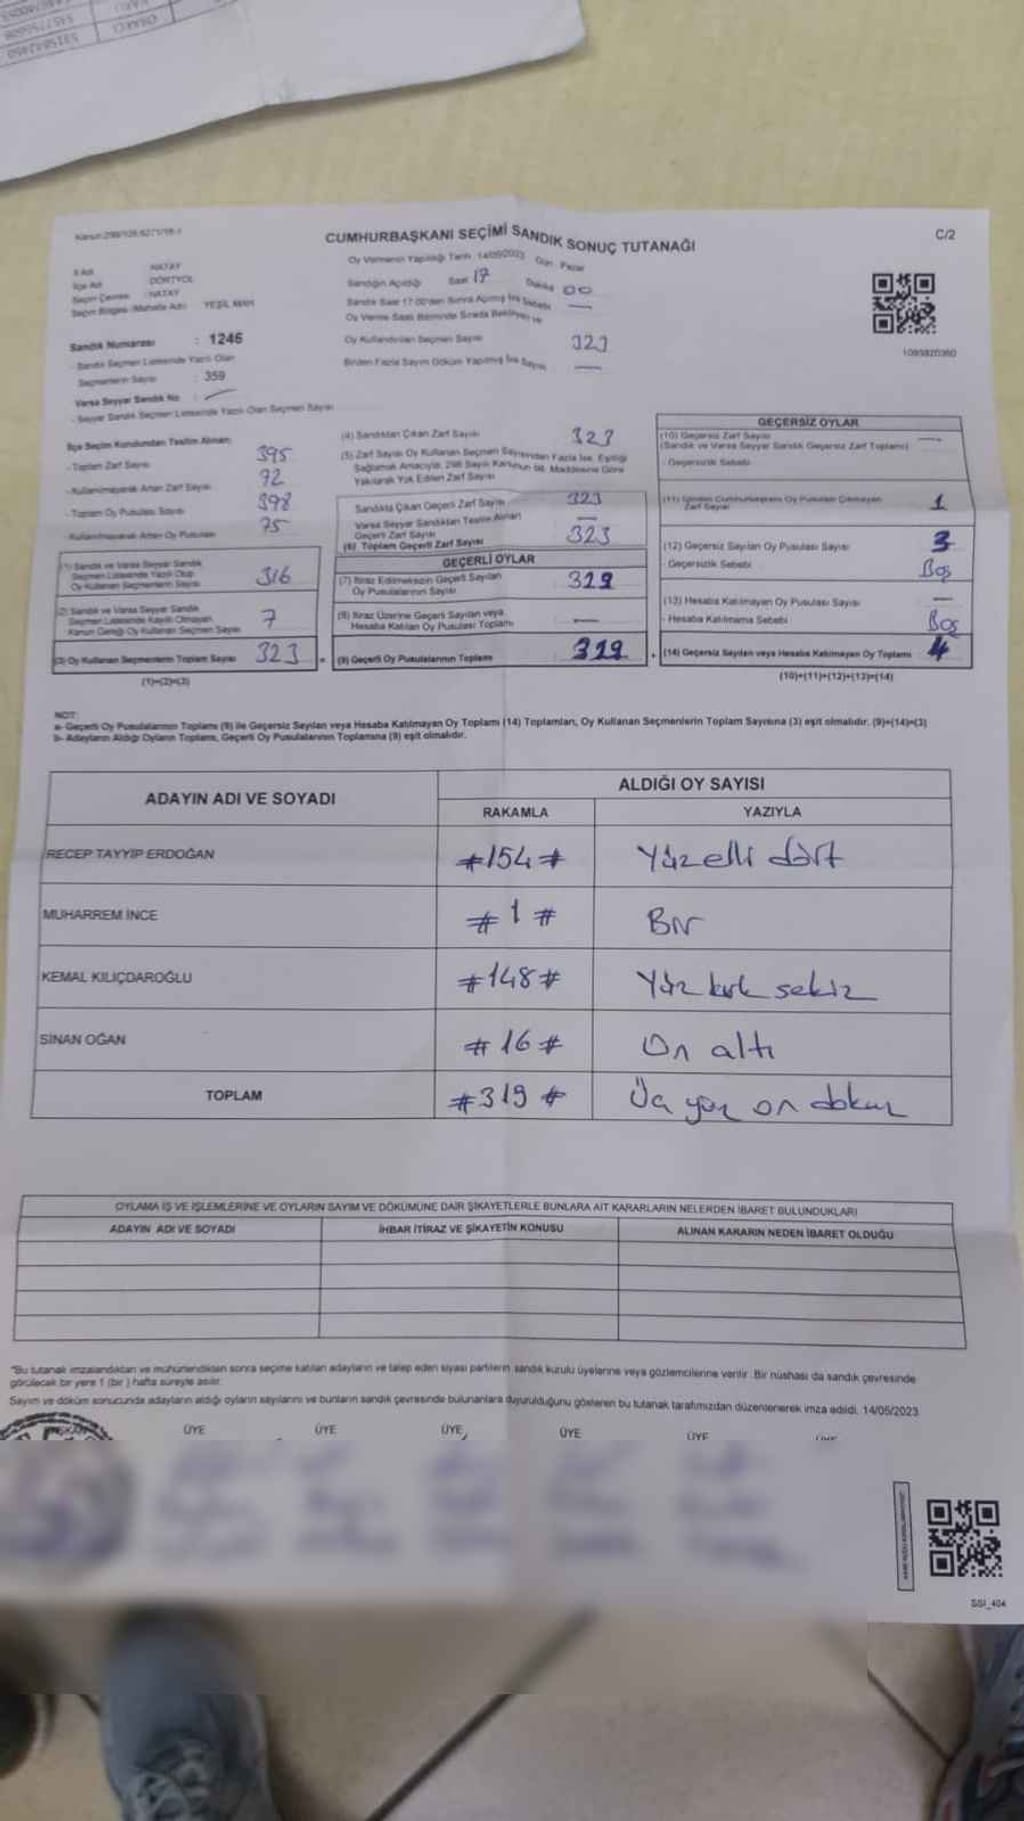 CUMHURBAŞKANI SEÇİMİ SANDIK SONUÇ TUTANAĞI
C/2
İl Adı : HATAY
İlçe Adı : DÖRTYOL
Seçim Çevresi : HATAY
Seçim Bölgesi (Mahalle Adı) : YEŞİL MAH
Sandık Numarası : 1246
- Sandık Seçmen Listesinde Yazılı Olan
Seçmenlerin Sayısı : 359
Varsa Seyyar Sandık No :
- Seyyar Sandık Seçmen Listesinde Yazılı Olan Seçmen Sayısı
Oy Vermenin Yapıldığı Tarih : 14/05/2023 Gün : Pazar
Sandığın Açıldığı Saat 17 Dakika 00
Sandık Saat 17:00'den Sonra Açılmış İse Sebebi —
Oy Verme Saati Bitiminde Sırada Bekleyen ve
Oy Kullandırılan Seçmen Sayısı 323
Birden Fazla Sayım Döküm Yapılmış İse Sayısı —
1093820360
İlçe Seçim Kurulundan Teslim Alınan;
- Toplam Zarf Sayısı 395
- Kullanılmayarak Artan Zarf Sayısı 72
- Toplam Oy Pusulası Sayısı 398
- Kullanılmayarak Artan Oy Pusulası 75
(1) Sandık ve Varsa Seyyar Sandık
Seçmen Listesinde Yazılı Olup
Oy Kullanan Seçmenlerin Sayısı 316
(2) Sandık ve Varsa Seyyar Sandık
Seçmen Listesinde Kayıtlı Olmayan
Kanun Gereği Oy Kullanan Seçmen Sayısı 7
(3) Oy Kullanan Seçmenlerin Toplam Sayısı 323
(1)+(2)=(3)
(4) Sandıktan Çıkan Zarf Sayısı 323
(5) Zarf Sayısı Oy Kullanan Seçmen Sayısından Fazla İse, Eşitliği
Sağlamak Amacıyla, 298 Sayılı Kanunun 98. Maddesine Göre
Yakılarak Yok Edilen Zarf Sayısı
Sandıkta Çıkan Geçerli Zarf Sayısı 323
Varsa Seyyar Sandıktan Teslim Alınan
Geçerli Zarf Sayısı —
(6) Toplam Geçerli Zarf Sayısı 323
GEÇERLİ OYLAR
(7) İtiraz Edilmeksizin Geçerli Sayılan
Oy Pusulalarının Sayısı 319
(8) İtiraz Üzerine Geçerli Sayılan veya
Hesaba Katılan Oy Pusulası Toplamı —
(9) Geçerli Oy Pusulalarının Toplamı 319
GEÇERSİZ OYLAR
(10) Geçersiz Zarf Sayısı —
(Sandık ve Varsa Seyyar Sandık Geçersiz Zarf Toplamı)
- Geçersizlik Sebebi
(11) İçinden Cumhurbaşkanı Oy Pusulası Çıkmayan
Zarf Sayısı 1
(12) Geçersiz Sayılan Oy Pusulası Sayısı 3
- Geçersizlik Sebebi Boş
(13) Hesaba Katılmayan Oy Pusulası Sayısı —
- Hesaba Katılmama Sebebi Boş
(14) Geçersiz Sayılan veya Hesaba Katılmayan Oy Toplamı 4
(10)+(11)+(12)+(13)=(14)
NOT:
a- Geçerli Oy Pusulalarının Toplamı (9) ile Geçersiz Sayılan veya Hesaba Katılmayan Oy Toplamı (14) Toplamları, Oy Kullanan Seçmenlerin Toplam Sayısına (3) eşit olmalıdır. (9)+(14)=(3)
b- Adayların Aldığı Oyların Toplamı, Geçerli Oy Pusulalarının Toplamına (9) eşit olmalıdır.
ADAYIN ADI VE SOYADI
ALDIĞI OY SAYISI
RAKAMLA YAZIYLA
RECEP TAYYİP ERDOĞAN #154# Yüzelli dört
MUHARREM İNCE #1# Bir
KEMAL KILIÇDAROĞLU #148# Yüz kırk sekiz
SİNAN OĞAN #16# On altı
TOPLAM #319# Üç yüz on dokuz
OYLAMA İŞ VE İŞLEMLERİNE VE OYLARIN SAYIM VE DÖKÜMÜNE DAİR ŞİKAYETLERLE BUNLARA AİT KARARLARIN NELERDEN İBARET BULUNDUKLARI
ADAYIN ADI VE SOYADI İHBAR İTİRAZ VE ŞİKAYETİN KONUSU ALINAN KARARIN NEDEN İBARET OLDUĞU
"Bu tutanak imzalandıktan ve mühürlendikten sonra seçime katılan adayların ve talep eden siyasi partilerin sandık kurulu üyelerine veya gözlemcilerine verilir. Bir nüshası da sandık çevresinde
görülecek bir yere 1 (bir) hafta süreyle asılır.
Sayım ve döküm sonucunda adayların aldığı oyların sayılarını ve bunların sandık çevresinde bulunanlara duyurulduğunu gösteren bu tutanak tarafımızdan düzenlenerek imza edildi. 14/05/2023
ÜYE ÜYE ÜYE ÜYE ÜYE
SSI_404